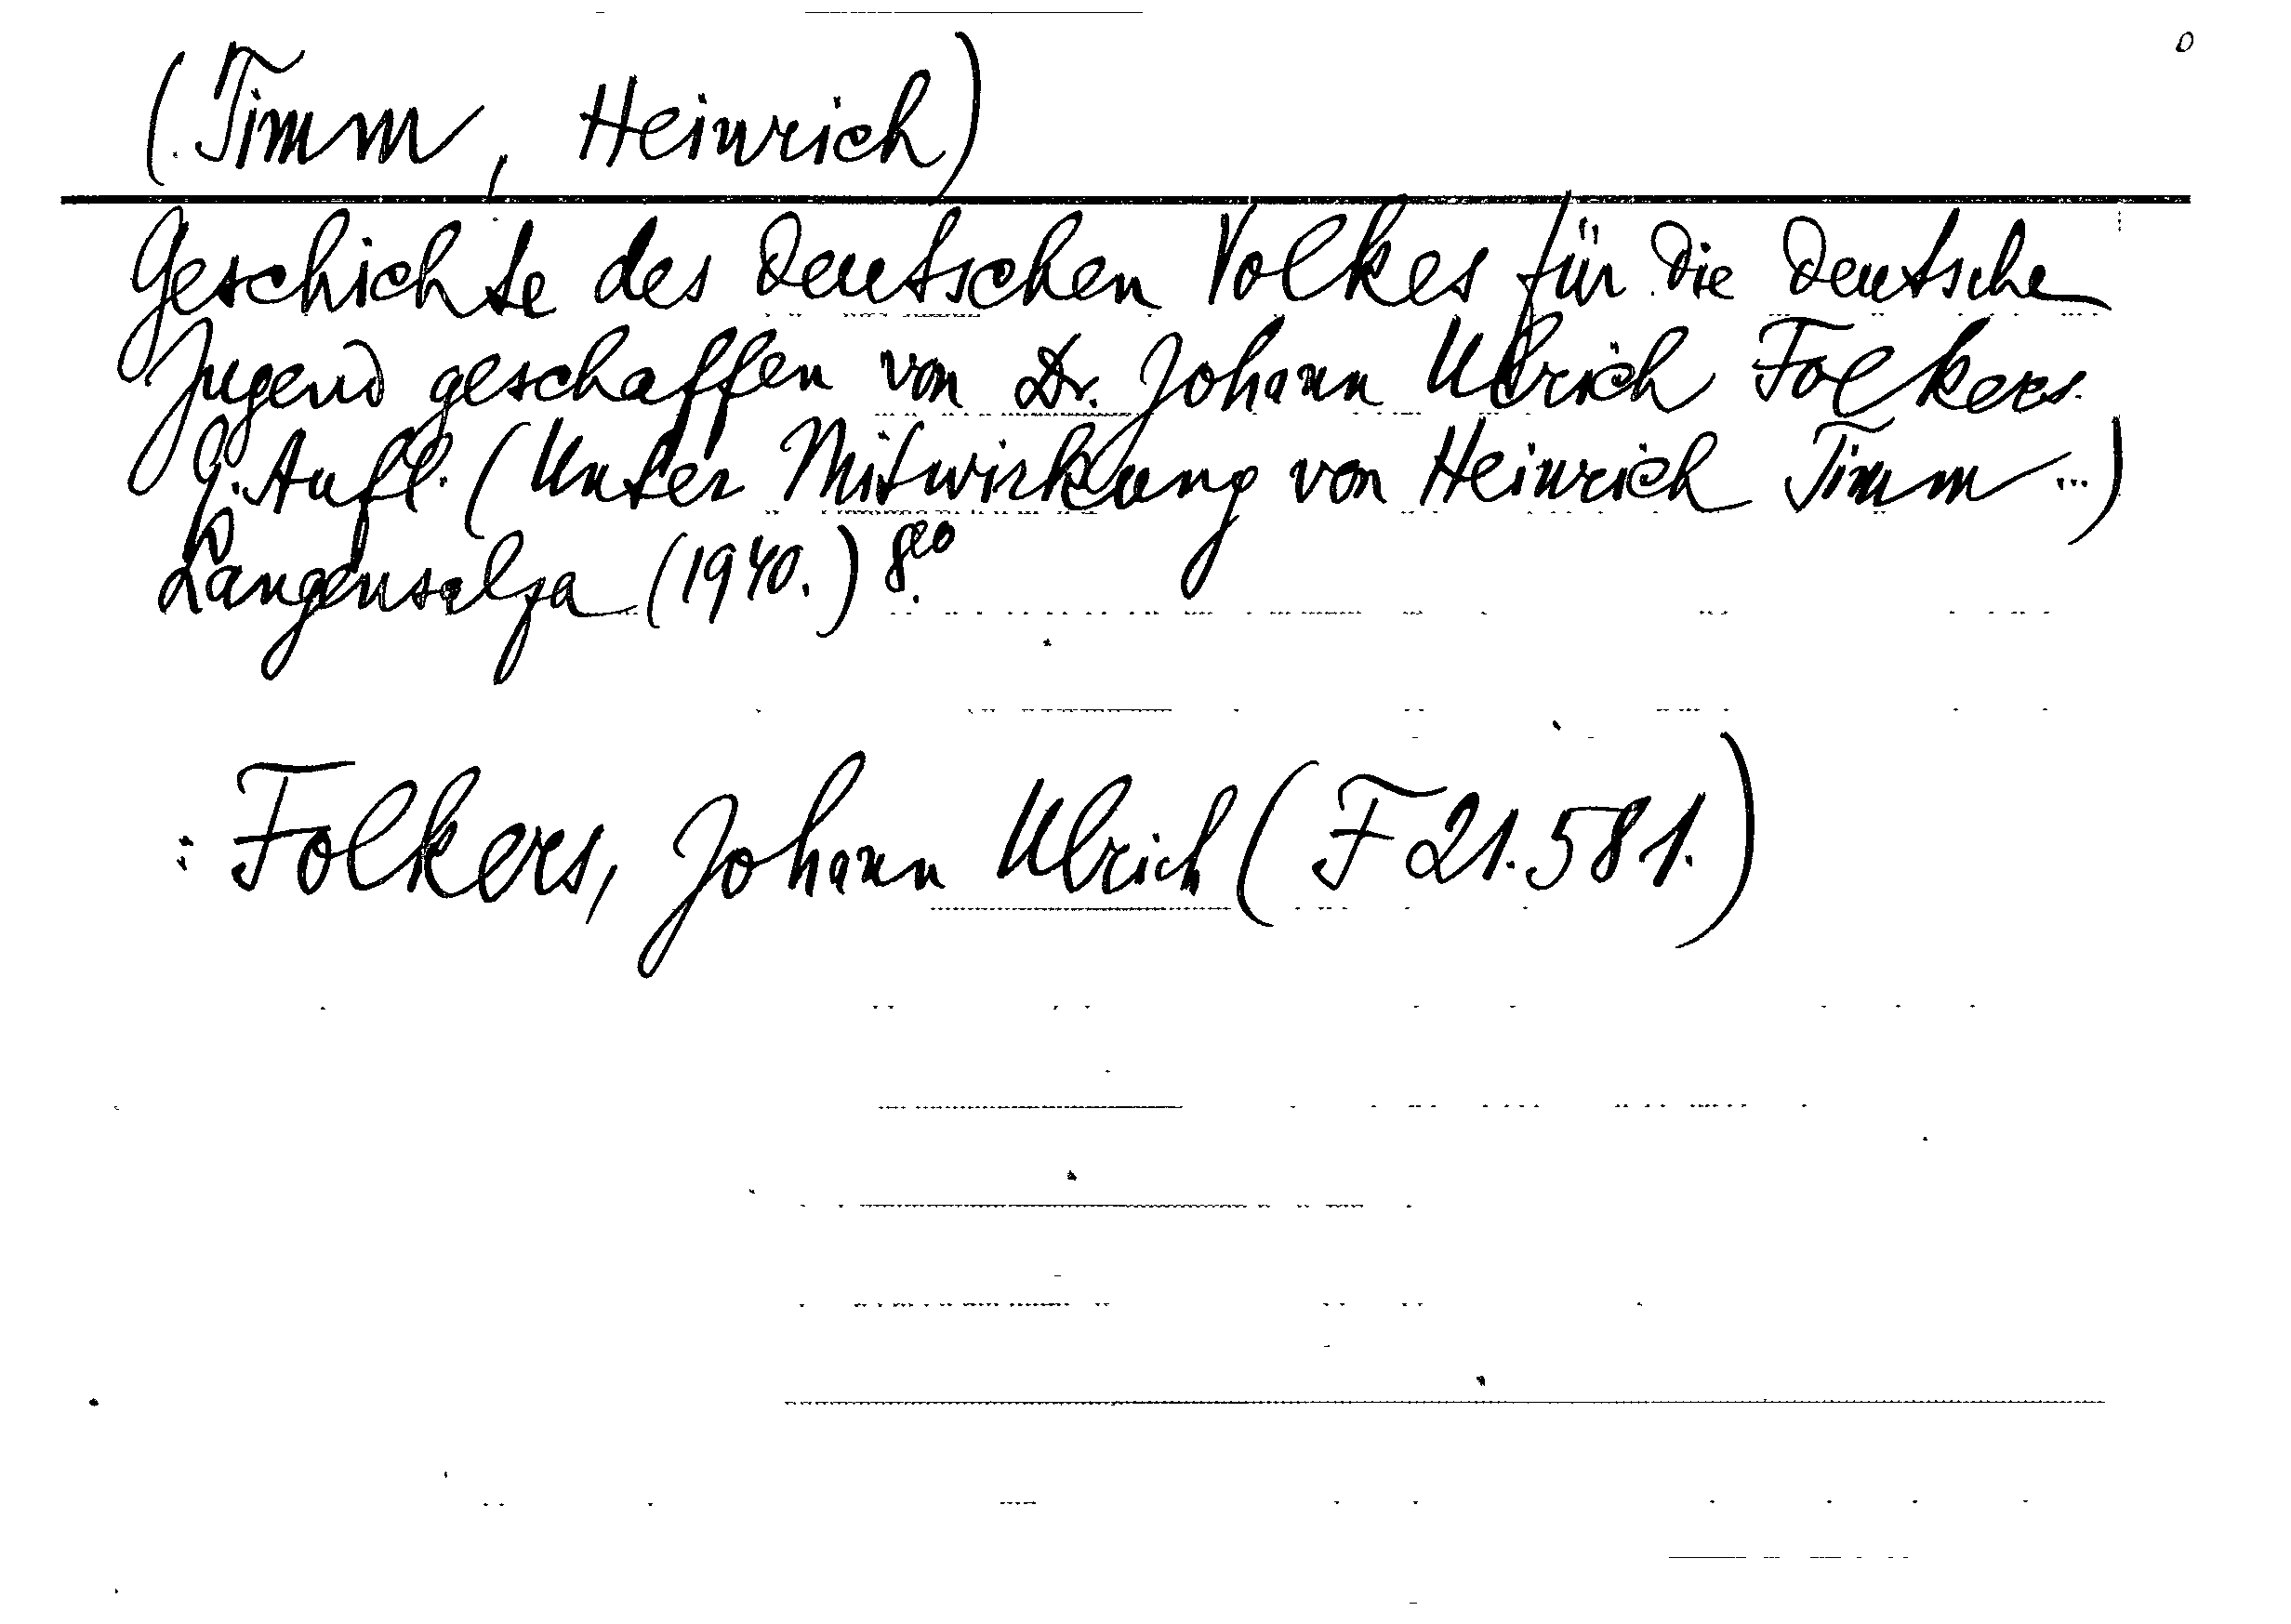 (Timm, Heinrich)
Geschichte des deutschen Volkes für die deutsche
Jugend geschaffen von Dr. Johann Ulrich Folkers.
9. Aufl. (Unter Mitwirkung von Heinrich Timm ...)
Langensalza (1940.) 8vo.
: Folkers, Johann Ulrich (F 21.581.)